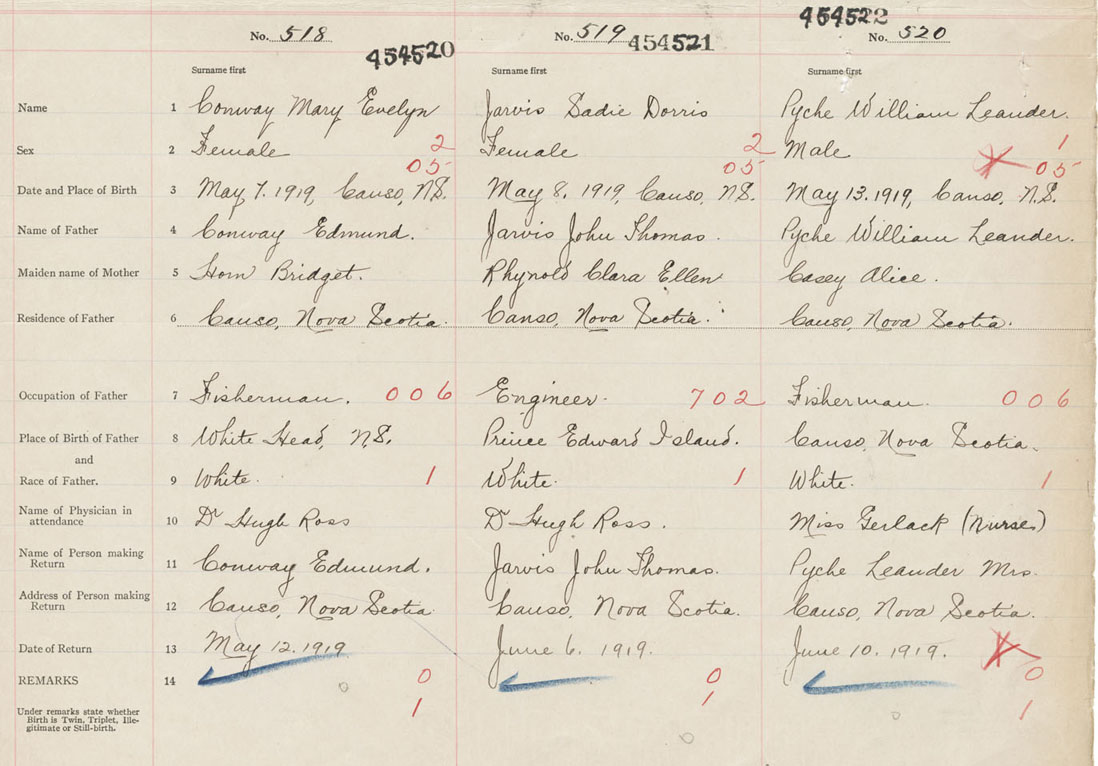 454522
No. 518 No. 519 No. 520
454520 454521
Surname first Surname first Surname first
Name 1 Conway Mary Evelyn Jarvis Sadie Dorris Pyche William Leander.
Sex 2 Female 2 Female 2 Male 1
05 05 05
Date and Place of Birth 3 May 7. 1919, Canso, N.S. May 8. 1919, Canso, N.S. May 13. 1919, Canso, N.S.
Name of Father 4 Conway Edmund. Jarvis John Thomas. Pyche William Leander.
Maiden name of Mother 5 Horn Bridget. Rhynold Clara Ellen Casey Alice.
Residence of Father 6 Canso, Nova Scotia. Canso, Nova Scotia. Canso, Nova Scotia.
Occupation of Father 7 Fisherman. 006 Engineer. 702 Fisherman. 006
Place of Birth of Father 8 White Head, N.S. Prince Edward Island. Canso, Nova Scotia.
and
Race of Father. 9 White. 1 White. 1 White. 1
Name of Physician in
attendance 10 Dr Hugh Ross Dr Hugh Ross. Miss Gerlack (Nurse)
Name of Person making
Return 11 Conway Edmund. Jarvis John Thomas. Pyche Leander Mrs.
Address of Person making
Return 12 Canso, Nova Scotia Canso, Nova Scotia. Canso, Nova Scotia.
Date of Return 13 May 12. 1919 June 6. 1919. June 10. 1919.
REMARKS 14 0 0 0
1 1 1
Under remarks state whether
Birth is Twin, Triplet, Ille-
gitimate or Still-birth.